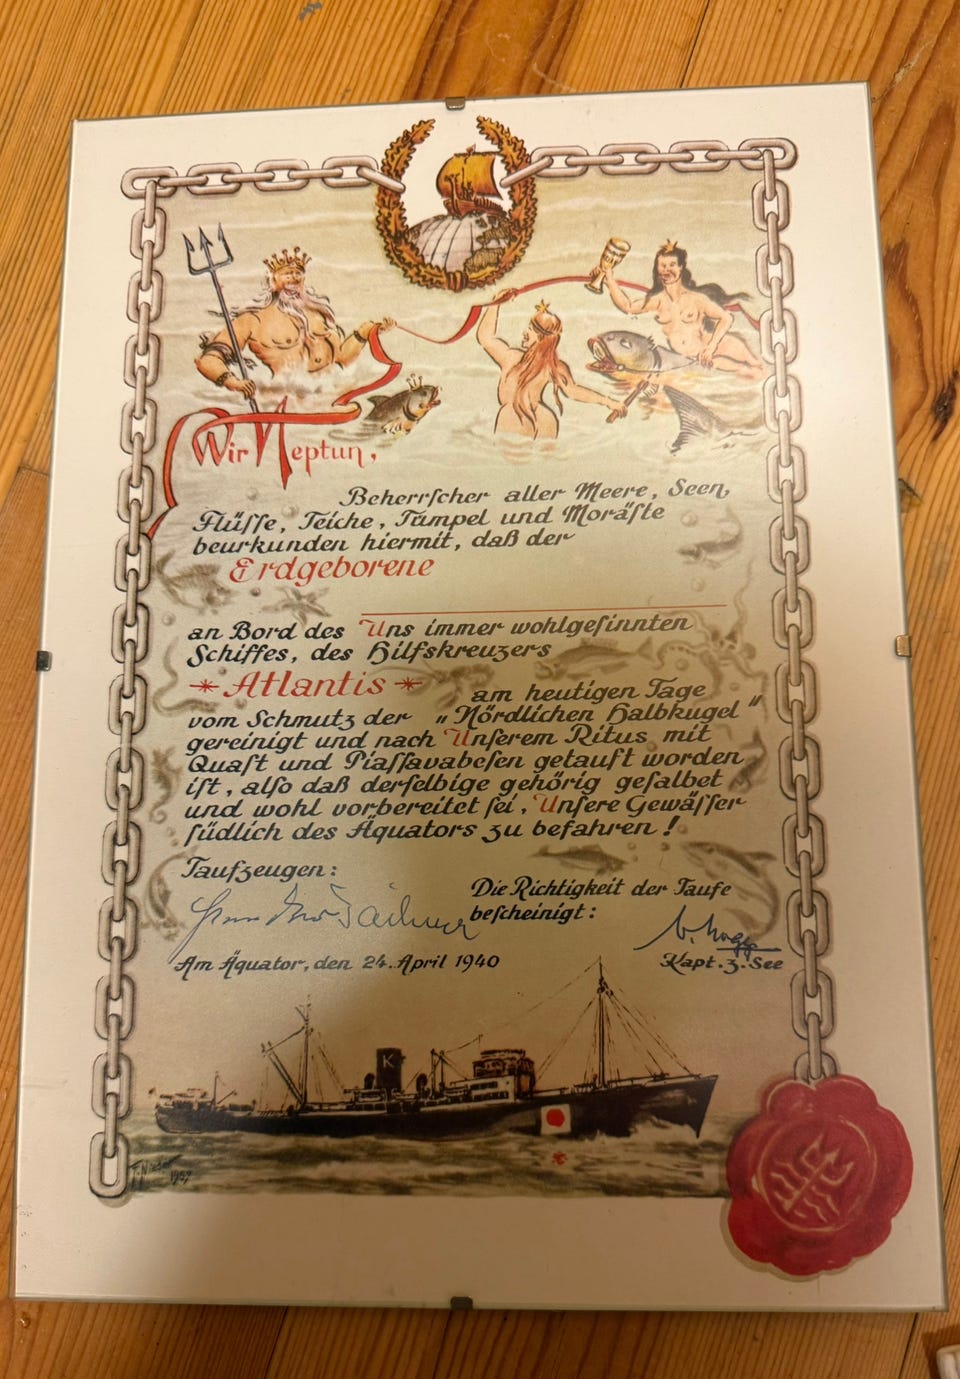 Wir Neptun,
Beherrſcher aller Meere, Seen,
Flüſſe, Teiche, Tümpel und Moräſte
beurkunden hiermit, daß der
Erdgeborene
an Bord des Uns immer wohlgeſinnten
Schiffes, des Hilfskreuzers
Atlantis am heutigen Tage
vom Schmutz der „Nördlichen Halbkugel"
gereinigt und nach Unſerem Ritus mit
Quaſt und Piaſſavabeſen getauft worden
iſt, alſo daß derſelbige gehörig geſalbet
und wohl vorbereitet ſei, Unſere Gewäſſer
ſüdlich des Äquators zu befahren!
Taufzeugen:
Die Richtigkeit der Taufe
beſcheinigt:
Kapt. z. See
Am Äquator, den 24. April 1940
K